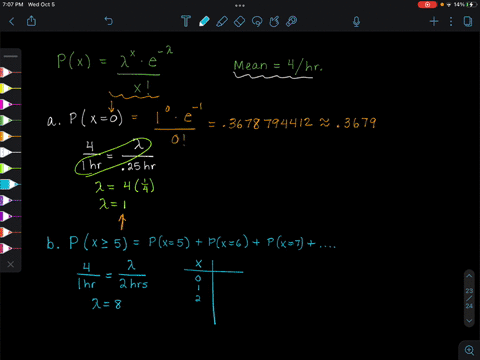 7:07 PM Wed Oct 5
14%
T
P(x) = λ^x · e^-λ / x!
Mean = 4/hr.
a. P(x=0) = 1^0 · e^-1 / 0! = .3678794412 ≈ .3679
4 / 1hr = λ / .25 hr
λ = 4(1/4)
λ = 1
b. P(x ≥ 5) = P(x=5) + P(x=6) + P(x=7) + ....
4 / 1hr = λ / 2hrs
λ = 8
x
0
1
2
23
24